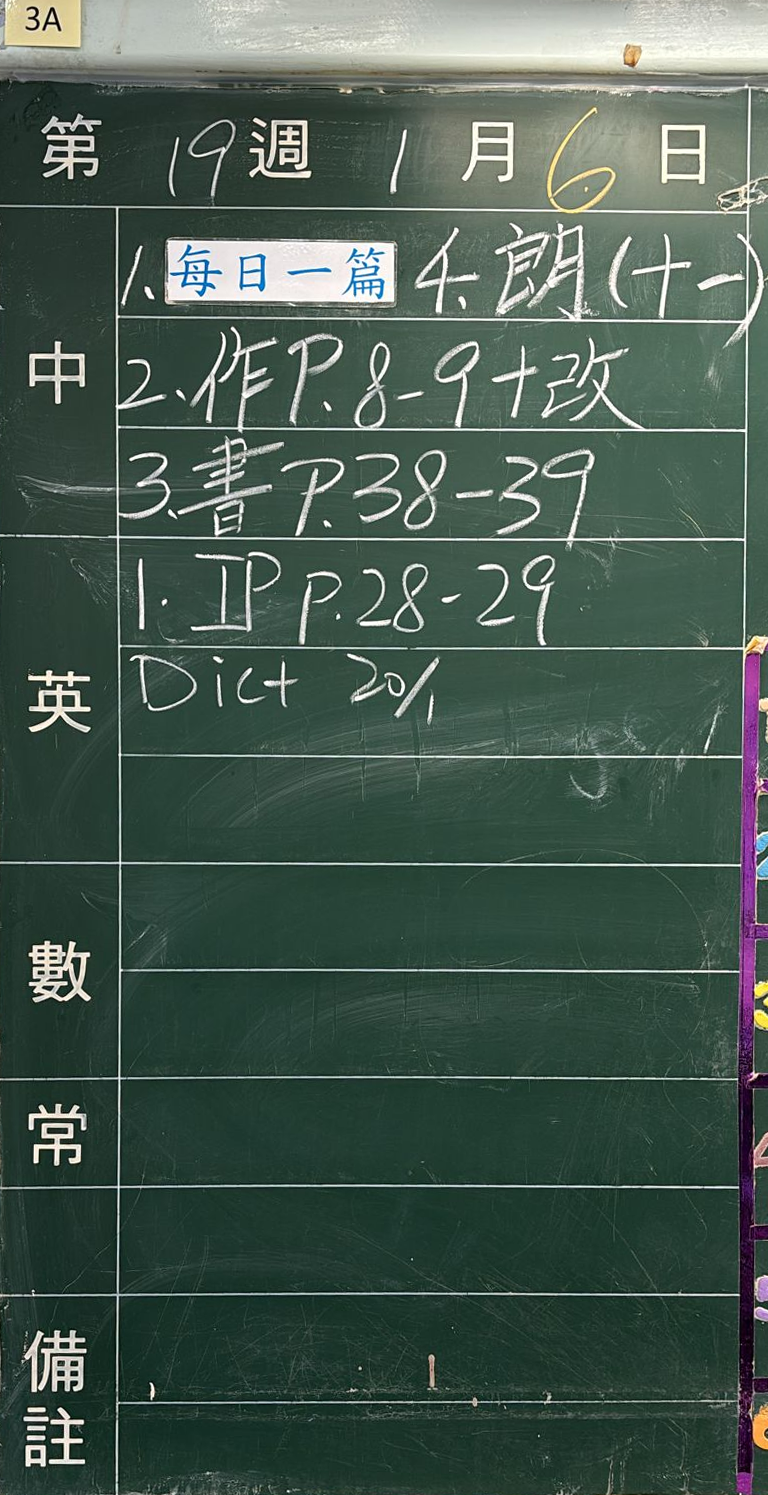 3A
第 19 週 1 月 6 日
中
1. 每日一篇 4. 朗(十一)
2. 作P. 8-9+改
3. 書 P. 38-39
英
1. IP p. 28-29
Dict 20/1
數
常
備註